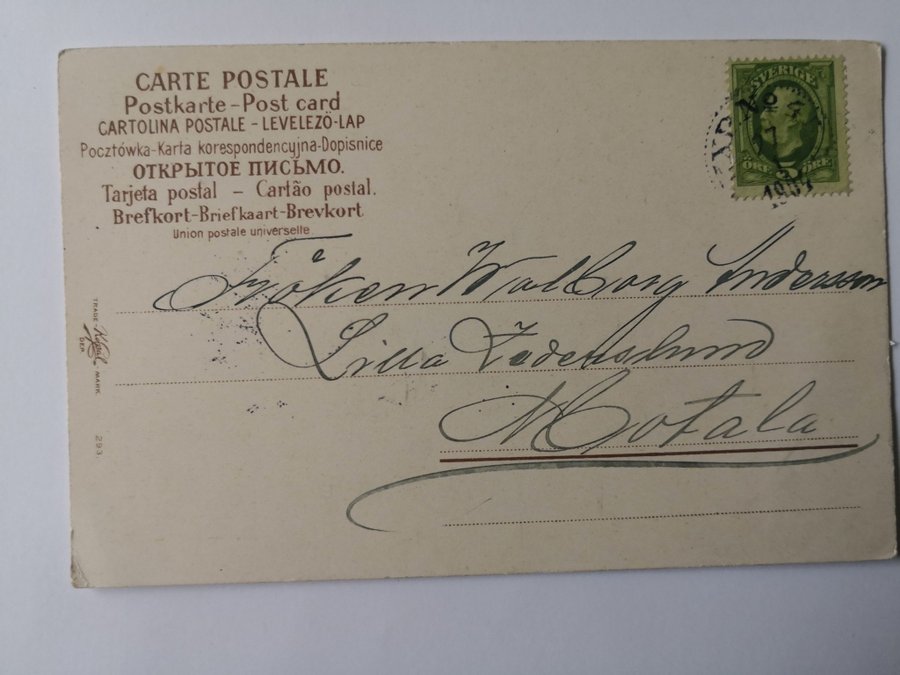 CARTE POSTALE
Postkarte - Post card
CARTOLINA POSTALE - LEVELEZÖ-LAP
Pocztówka-Karta korespondencyjna-Dopisnice
ОТКРЫТОЕ ПИСЬМО.
Tarjeta postal — Cartão postal.
Brefkort-Briefkaart-Brevkort
Union postale universelle
SVERIGE
5
ÖRE ÖRE
Fröken Walborg Andersson
Lilla
Motala
TRADE
MARK
293.